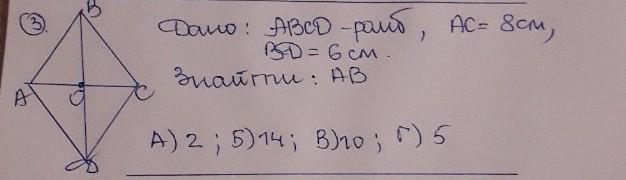 3.
B
Дано: ABCD - ромб, AC = 8см,
BD = 6 см.
Знайти: AB
A O C
D
А) 2; Б) 14; В) 10; Г) 5